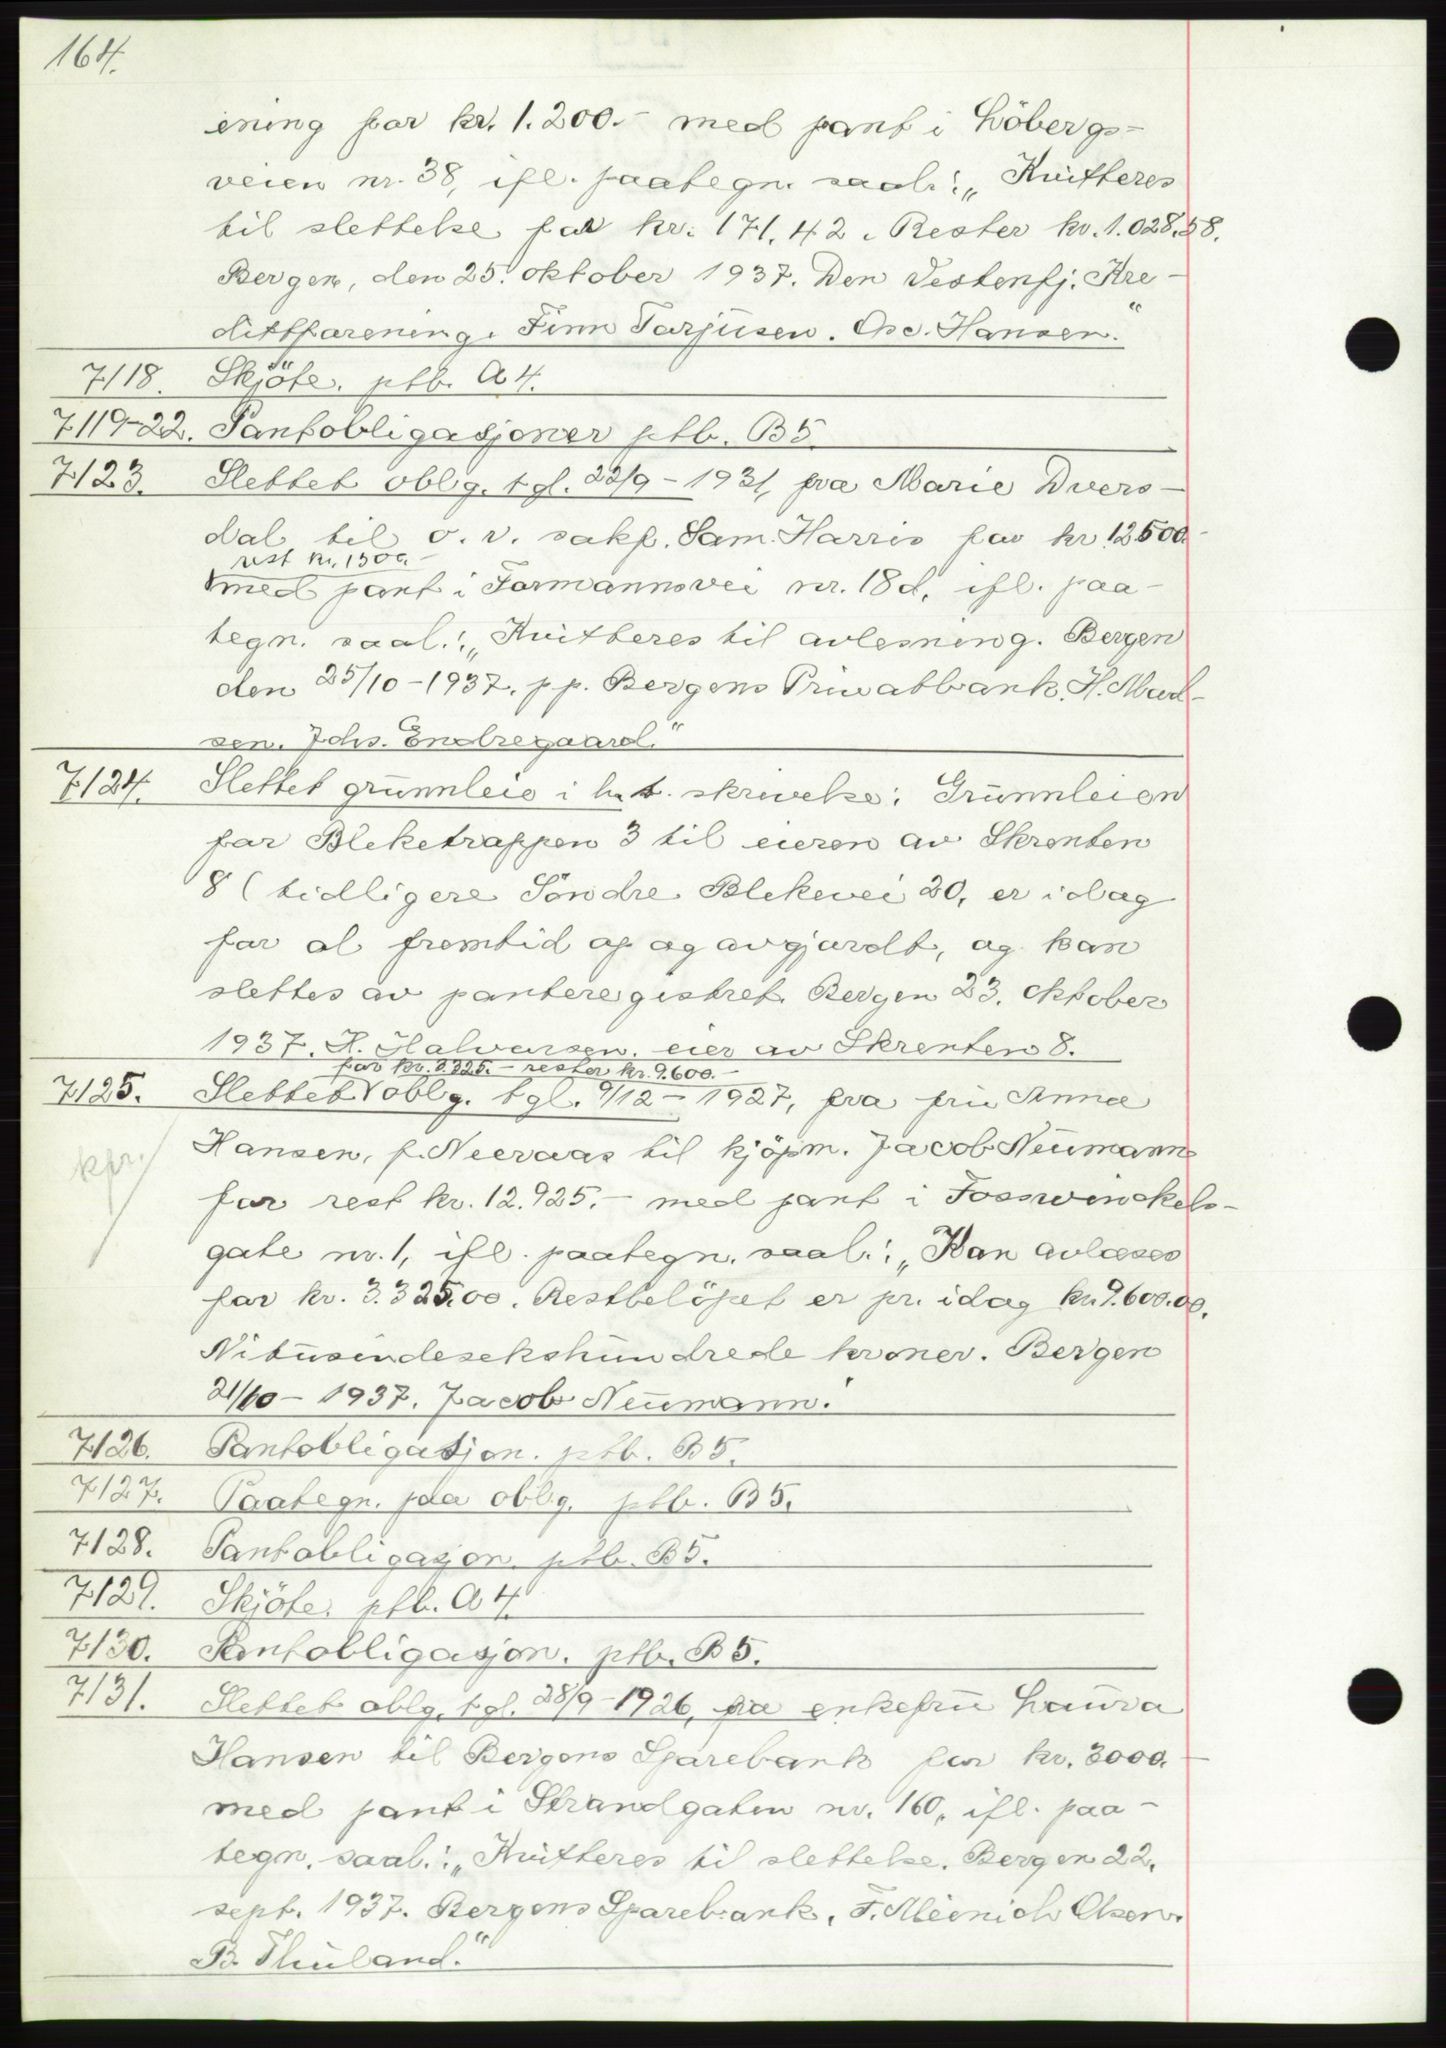 164.
ening for kr. 1.200.- med pant i Löbergs-
veien nr. 38, ifl. paategn. saal.: „Kvitteres
til slettelse for kr. 171.42. Rester kr. 1.028.58.
Bergen, den 25. oktober 1937. Den Vestenfj. Kre-
dittforening. Finn Tarjusen. Osc. Hansen."
7118. Skjöte. ptb. A 4.
7119-22. Pantobligasjoner ptb. B 5.
7123. Slettet oblg. tgl. 22/9 - 1931, fra Marie Dvers-
dal til o. r. sakf. Sam. Harris for kr. 12500.-
rest kr. 1500.-
med pant i Formannsvei nr. 18d, ifl. paa-
tegn. saal.: „Kvitteres til avlesning. Bergen
den 25/10 - 1937. pp. Bergens Privatbank. H. Mad-
sen. Johs. Endregaard."
7124. Slettet grunnleie i h.t. skrivelse: Grunnleien
for Bleketrappen 3 til eieren av Skrenten
8 (tidligere Söndre Blekevei 20, er idag
for al fremtid op og avgjordt, og kan
slettes av panteregistret. Bergen 23. oktober
1937. H. Halvorsen. eier av Skrenten 8.
for kr. 3.325.- rester kr. 9.600.-
7125. Slettet oblg. tgl. 9/12 - 1927, fra fru Anna
kfr.
Hansen, f. Neeraas til kjöpm. Jacob Neumann
for rest kr. 12.925.- med pant i Fosswinckels-
gate nr. 1, ifl. paategn. saal.: „Kan avlæses
for kr. 3.325.00. Restbelöpet er pr. idag kr. 9.600.00.
Nitusindesekshundrede kroner. Bergen
21/10 - 1937. Jacob Neumann."
7126. Pantobligasjon. ptb. B 5.
7127. Paategn. paa oblg. ptb. B 5.
7128. Pantobligasjon. ptb. B 5.
7129. Skjöte. ptb. A 4.
7130. Pantobligasjon. ptb. B 5.
7131. Slettet oblg. tgl. 28/9 - 1926, fra enkefru Laura
Hansen til Bergens Sparebank for kr. 3000.-
med pant i Strandgaten nr. 160, ifl. paa-
tegn. saal.: „Kvitteres til slettelse. Bergen 22.
sept. 1937. Bergens Sparebank. F. Meinich Olsen.
B. Thuland."